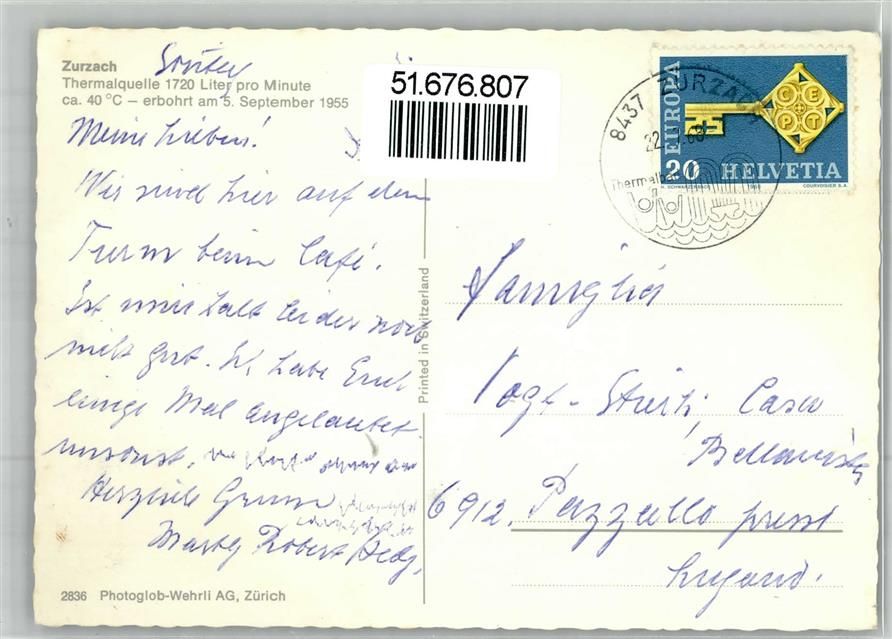 Zurzach
Thermalquelle 1720 Liter pro Minute
ca. 40 °C – erbohrt am 5. September 1955
51.676.807
8437 ZURZACH
22.
Thermalbad
EUROPA
CEPT
20 HELVETIA
COURVOISIER S.A.
Meine Lieben!
Wir sind hier auf dem
Turm beim Café.
Ist mir halt leider noch
nicht gut. Ich habe Euch
einige Mal angeläutet
umsonst,
Herzliche Grüsse
Robert Hedy,
Printed in Switzerland
Famiglia
Vogt - Casa
6912. Pazzallo presso
Lugano.
2836 Photoglob-Wehrli AG, Zürich